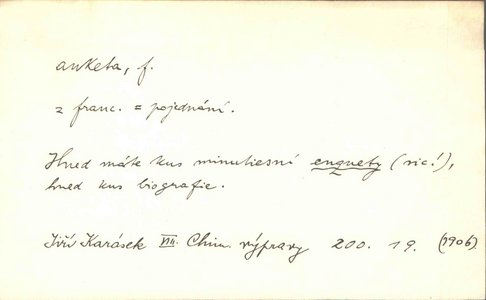 anketa, f.
z franc. = pojednání.
Hned máte kus minutiesní enquety (sic!),
hned kus biografie.
Jiří Karásek VII. Chim. výpravy 200. 19. (1906)